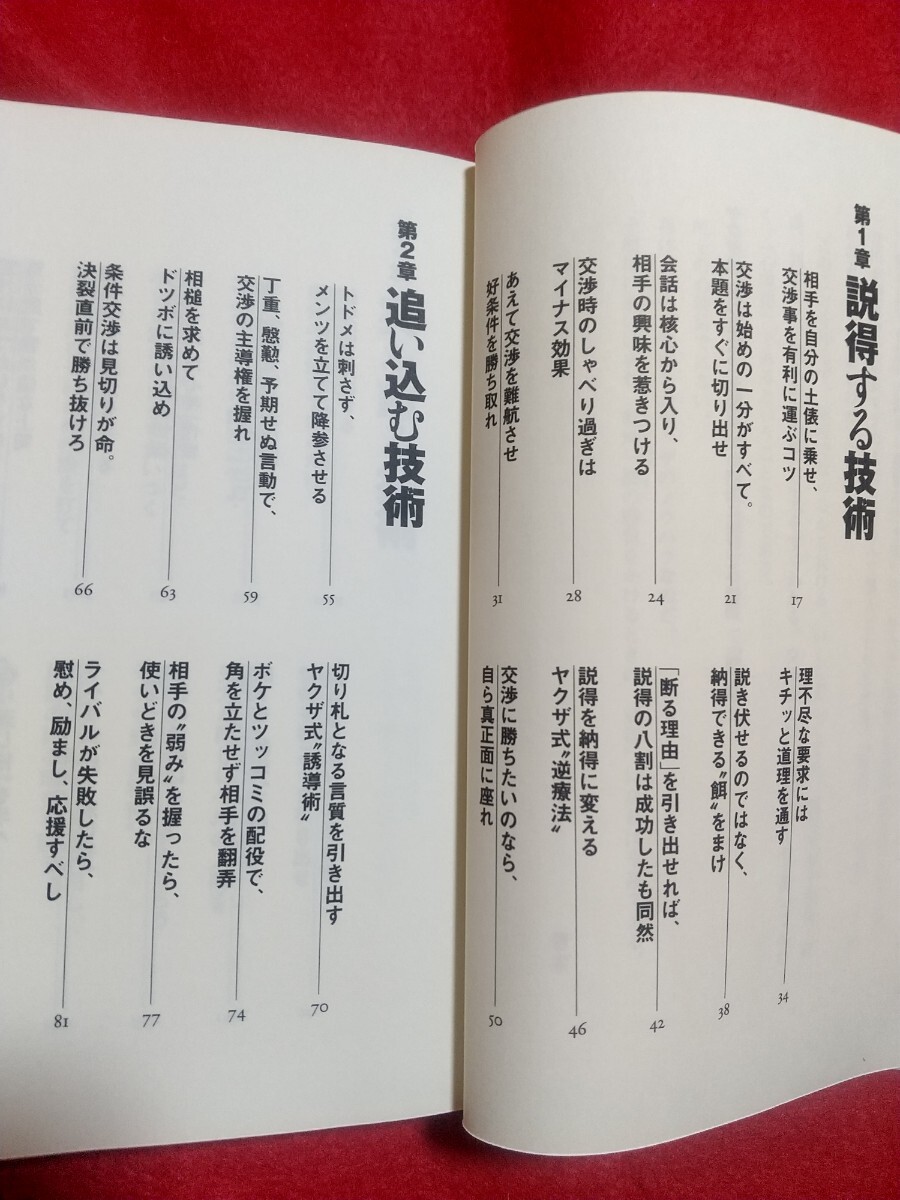 第1章 説得する技術
相手を自分の土俵に乗せ、
交渉事を有利に運ぶコツ
17
交渉は始めの一分がすべて。
本題をすぐに切り出せ
21
会話は核心から入り、
相手の興味を惹きつける
24
交渉時のしゃべり過ぎは
マイナス効果
28
あえて交渉を難航させ
好条件を勝ち取れ
31
理不尽な要求には
キチッと道理を通す
34
説き伏せるのではなく、
納得できる〝餌〟をまけ
38
「断る理由」を引き出せれば、
説得の八割は成功したも同然
42
説得を納得に変える
ヤクザ式〝逆療法〟
46
交渉に勝ちたいのなら、
自ら真正面に座れ
50
第2章 追い込む技術
トドメは刺さず、
メンツを立てて降参させる
55
丁重、慇懃、予期せぬ言動で、
交渉の主導権を握れ
59
相槌を求めて
ドツボに誘い込め
63
条件交渉は見切りが命。
決裂直前で勝ち抜けろ
66
切り札となる言質を引き出す
ヤクザ式〝誘導術〟
70
ボケとツッコミの配役で、
角を立たせず相手を翻弄
74
相手の〝弱み〟を握ったら、
使いどきを見誤るな
77
ライバルが失敗したら、
慰め、励まし、応援すべし
81